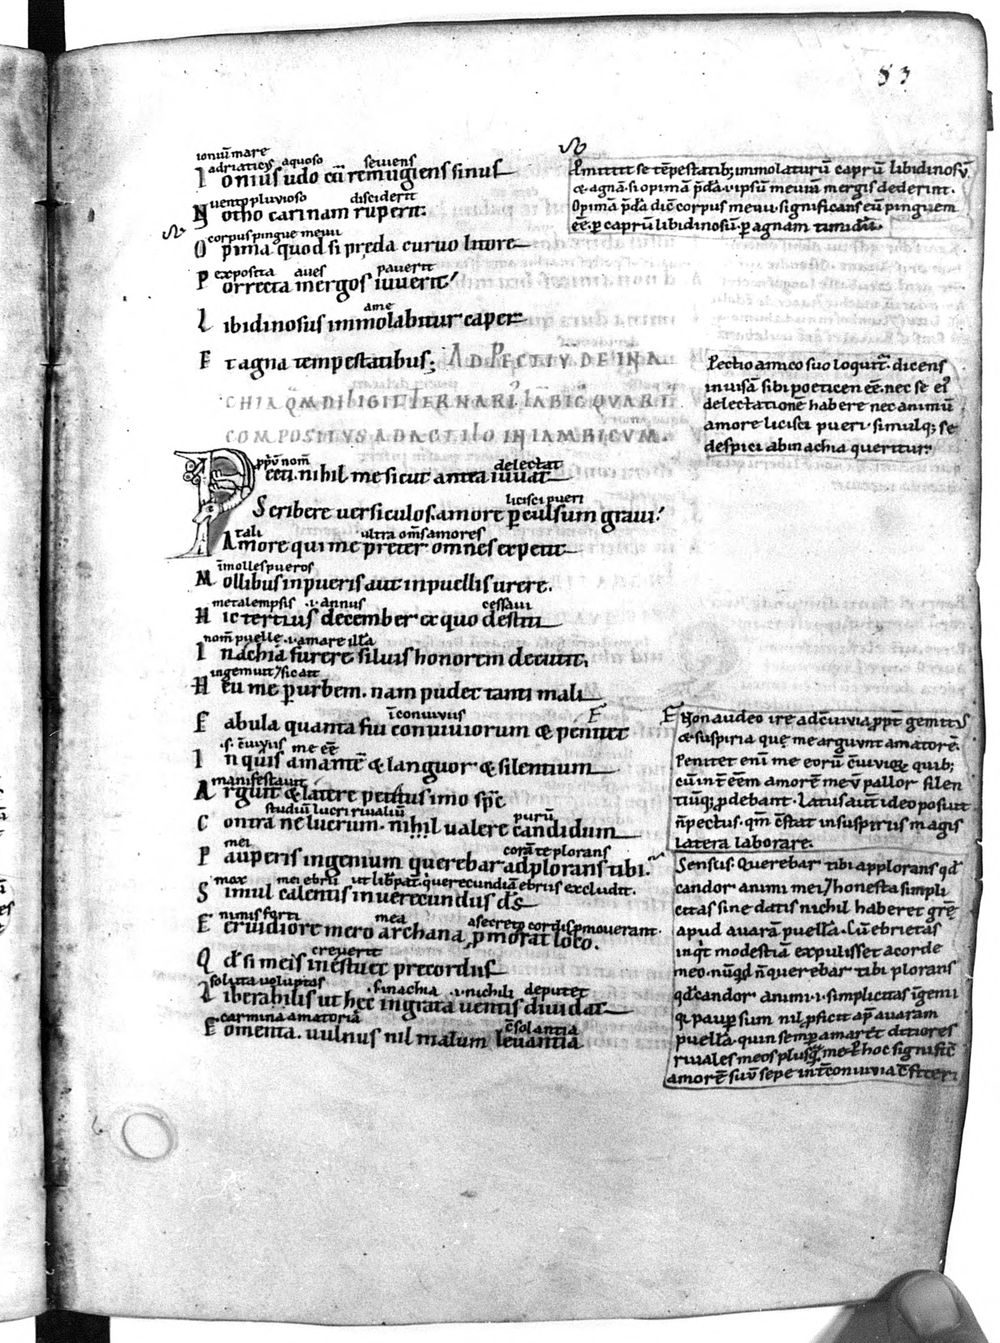 83
ioniũ mare
adriaticꝰ aquoso seuiens
I onius udo cũ remugiens sinus
uento pluuioso disciderit
N otho carinam ruperit.
corpus pingue meuii
O pima quod si preda curuo litore
exposita aues pauerit
P orrecta mergos iuuerit
ame
L ibidinosus immolabitur caper
E t agna tempestatibus; AD PECTIU DE INA
CHIA QM DILIGIT TERNARI IABIC QUART
COMPOSITUS A DACTILO IN IAMBICUM.
ppũ nom̃ delectat
P ecti. nihil me sicut antea iuuat
licisci pueri
S cribere uersiculos. amore p̱culsum graui.
tali ultra om̃s amores
A more qui me preter omnes expetit
ĩ molles pueros
M ollibus in pueris aut in puellis urere.
metalempsis .i. annus cessaui
H ic tertius december ex quo destiti
nom̃ puelle .i. amare illã
I nachia furere siluis honorem decutit.
ingemuit
H eu me p̱ urbem. nam pudet tanti mali
ĩ conuiuiis
F abula quanta fui conuiuiorum & penitet
.s. cũiuiis me eẽ
I n quis amantẽ & languor & silentium
manifestauit
A rguit & latere petitus imo sp̃c
studiũ lucri riualiũ purũ
C ontra ne lucrum. nihil ualere candidum
mei corã te plorans
P auperis ingenium querebar adplorans tibi.
mox mei ebrii
S imul calentis inuerecundus d̃s
nimis forti mea a secreto cordis pmouerant.
F eruidiore mero archana p̱morat loco.
creuerit
Q d̃ si meis inestuet precordiis
soluta uoluptas .s. inachia .i. nichili deputet
L ibera bilis ut hec ingrata uentis diuidat
carmina amatoria c̃solantia
F omenta. uulnus nil malum leuantia
Pmittit se tẽpestatib; immolaturũ caprũ libidinosũ
& agnã. si opimã p̃dã .i. ipsũ meuiũ mergis dederint.
Opimã p̃dã dic̃ corpus meuii. significans eũ pinguem
eẽ. p̱ caprũ libidinosũ. p̱ agnam timidũ.
Pectio amico suo loquit̃. dicens
inuisã sibi poeticen eẽ. nec se ei
delectationẽ habere nec animũ
amore licisci pueri. simulq; se
despici ab inachia queritur.
Non audeo ire ad cũiuia ppt̃ gemitus
& suspiria que me arguunt amatorẽ.
Penitet enĩ me eorũ cũuiuiorum quib;
cũ int̃eẽm amorẽ meũ pallor silen
tiũq; p̱debant. Latus aut̃ ideo posuit
ñ pectus. qm̃ c̃stat in suspiriis magis
latera laborare.
Sensus. Querebar tibi applorans qd̃
candor animi mei / honesta simpli
citas sine datis nichil haberet grẽ
apud auarã puellã. Cũ ebrietas
inqt modestiã expulisset a corde
meo. nũqd ñ querebar tibi plorans
qd̃ candor animi .i. simplicitas ĩgenii
q̃ paup̱ sum nil p̱ficit ap̃ auaram
puellã. quin semp̱ amaret ditiores
riuales meos plusq̃ me. P hoc signific̃
amorẽ suũ sepe int̃ conuiuia c̃fiteri